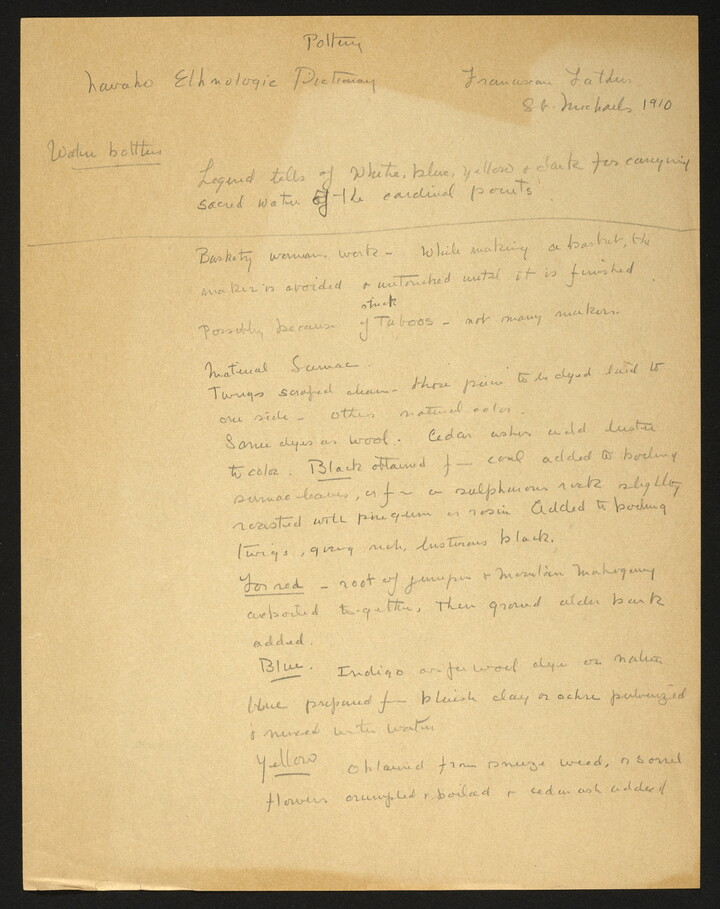 Pottery
Navaho Ethnologic Dictionary Franciscan Fathers
St. Michaels 1910
Water bottles
Legend tells of White, blue, yellow & dark for carrying
sacred water of the cardinal points.
Basketry woman's work - While making a basket, the
maker is avoided & untouched until it is finished.
Possibly because of strict Taboos - not many makers.
Material Sumac.
Twigs scraped clean - those parts to be dyed laid to
one side - others natural color.
Same dyes as wool. Cedar ashes add luster
to color. Black obtained f— coal added to boiling
sumac leaves, or f— a sulphurous rock slightly
roasted with pine gum or rosin Added to boiling
twigs, giving rich, lustrous black.
For red - root of juniper & Mountain Mahogany
are boiled together, then ground alder bark
added.
Blue. Indigo as for wool dye or native
blue prepared f— bluish clay or ochre pulverized
& mixed with water
Yellow obtained from sneeze weed, or sorrel
flowers crumpled & boiled & cedar ash added